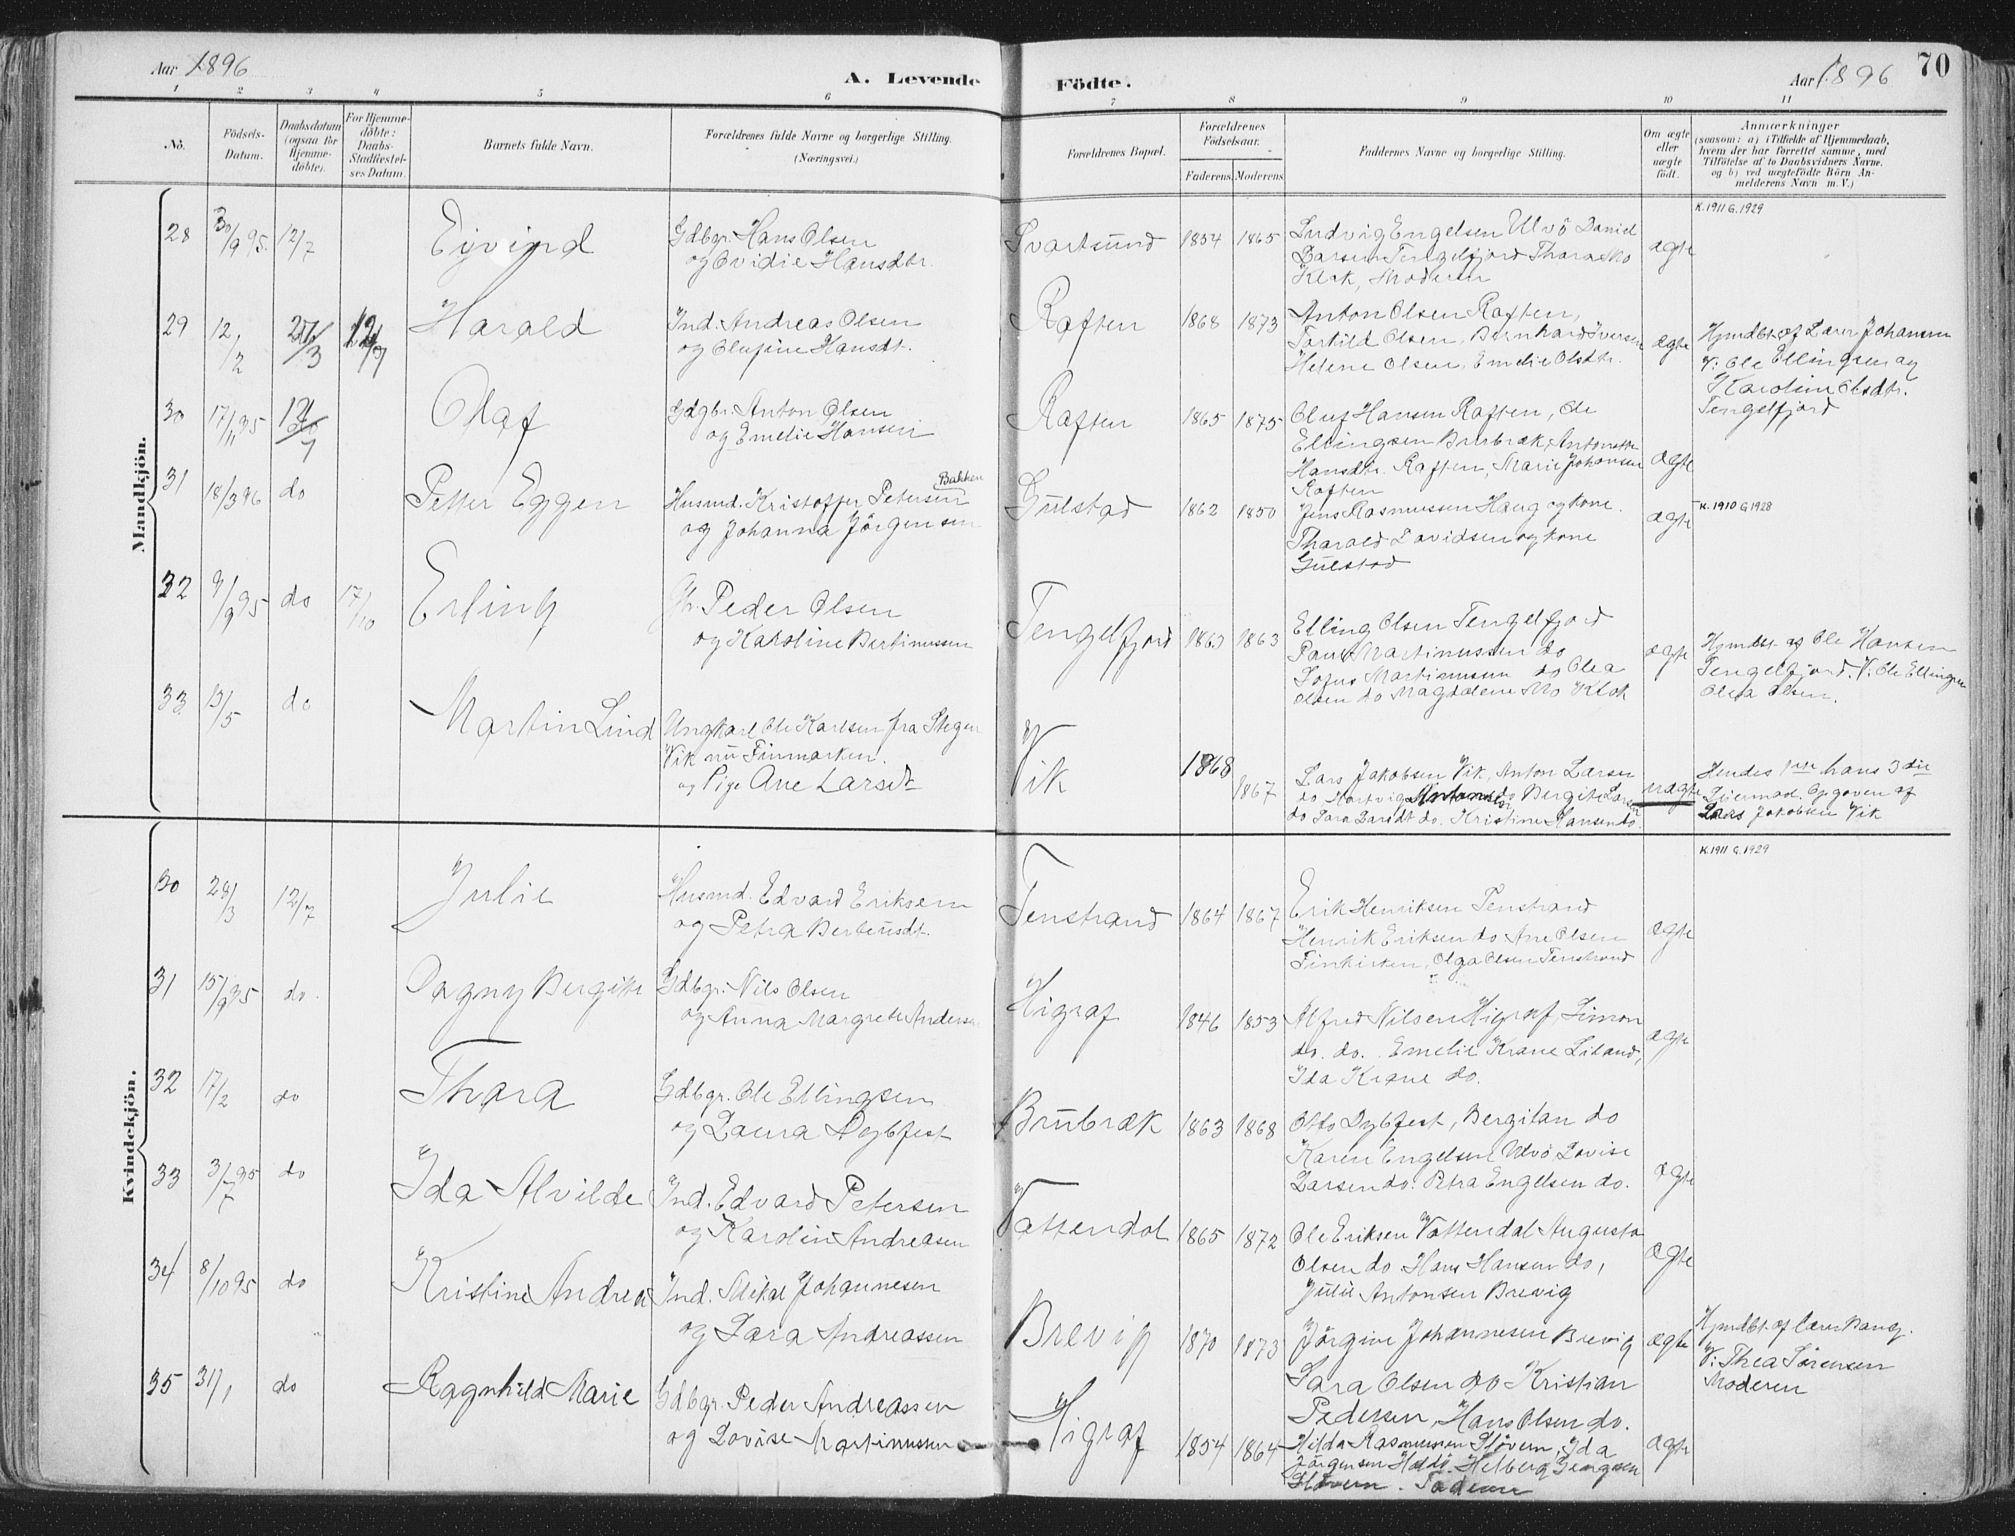 Aar 1896
A. Levende Födte.
Aar 1896
70
1 2 3 4 5 6 7 8 9 10 11
No.
Födsels-Datum.
Daabsdatum (ogsaa for Hjemme-döbte).
For Hjemme-döbte: Daabs-Stadfæstel-ses Datum.
Barnets fulde Navn.
Forældrenes fulde Navne og borgerlige Stilling. (Næringsvei.)
Forældrenes Bopæl.
Forældrenes Födselsaar.
Faderens. Moderens.
Faddernes Navne og borgerlige Stilling.
Om ægte eller uægte födt.
Anmærkninger
(saasom: a) i Tilfælde af Hjemmedaab, hvem der har forrettet samme, med Tilföielse af to Daabsvidners Navne. og b) ved uægtefödte Börn An-melderens Navn m. V.)
Mandkjön.
28 30/9 95 12/7 Eyvind
Gdbgr. Hans Olsen
og Ovidie Hansdtr.
Svartsund 1854 1865
Ludvig Engelsen Ulvö Daniel
Larsen Tengelfjord Thora Mo
Klok, Moderen
ægte
K. 1911 G. 1929
29 12/2 /3 12/7 Harald
Ind. Andreas Olsen
og Olufine Hansdt.
Raften 1868 1873
Anton Olsen Raften,
Torkild Olsen, Bernhard Iversen
Helene Olsen, Emelie Olsdtr.
ægte
Hjmdbt. af Lærer Johansen
V: Ole Ellingsen og
Karoline Olsdtr.
Tengelfjord
30 17/11 95 12/7 Olaf
Gdgbr. Anton Olsen
og Emelie Hansen
Raften 1865 1875
Oluf Hansen Raften, Ole
Ellingsen Brubræk, Antonette
Hansdtr. Raften, Marie Johansen
Raften
ægte
31 18/3 96 do Petter Eggen
Husmd. Kristoffer Petersen Bakken
og Johanna Jörgensen
Gulstad 1862 1850
Jens Rasmussen Haug og kone.
Tharald Davidsen og kone
Gulstad
ægte
K. 1910 G 1928
32 9/9 95 do 17/10 Erling
Gbr. Peder Olsen
og Karoline Bertinussen
Tengelfjord 1863
Elling Olsen Tengelfjord
Paul Martinussen do
Sofus Martinussen do Olea
Olsen do Magdalene Mo Klok
ægte
Hjmdbt. af Ole Hansen
Tengelfjord. V. Ole Ellingsen
Olea Olsen.
33 13/5 do Martin Lind
Ungkarl Ole Karlsen fra Stegen
Vik nu Finmarken.
og Pige Ane Larsdt
Vik 1868 1867
Lars Jakobsen Vik, Anton Larsen
do Hartvig Antonsen do Bergite Larsen
do Sara Larsdt do. Kristine Hansen do.
uægte
Hendes 1ste hans 3die
Leiermaal. Opgaven af
Lars Jakobsen Vik
Kvindekjön.
30 28/3 12/7 Julie
Husmd. Edvard Eriksen
og Petra Berteusdt.
Tenstrand 1864 1867
Erik Henriksen Tenstrand
Henrik Eriksen do Ane Olsen
Finkirken, Olga Olsen Tenstrand
ægte
K. 1911 G. 1929
31 15/9 95 do. Dagny Bergitte
Gdbgr. Nils Olsen
og Anna Margrete Anders
Higraf 1846 1853
Alfred Nilsen Higraf, Simon
do. do. Emelie Krane Liland,
Ida Krane do.
ægte
32 17/2 do Thora
Gdbgr. Ole Ellingsen
og Laura Dybfest
Brubræk 1863 1868
Otto Dybfest, Bergitan do
Karen Engelsen Ulvö Lovise
Larsen do. Petra Engelsen do.
ægte
33 3/7 95 do Ida Alvilde
Ind. Edvard Petersen
og Karolin Andreasen
Vattendal 1865 1872
Ole Eriksen Vattendal Augusta
Olsen do Hans Hansen do,
Julie Antonsen Brevig
ægte
34 8/10 95 do Kristine Andrea
Ind. Mikal Johannesen
og Sara Andreassen
Brevig 1870 1873
Jörgine Johannesen Brevig
Sara Olsen do Kristian
Pedersen, Hans Olsen do.
ægte
Hjmdbt. af Lærer Bang.
V: Thea Sörensen
Moderen
35 31/1 do Ragnhild Marie
Gdbgr. Peder Andreassen
og Lovise Martinussen
Higraf 1854 1864
Hilda Rasmussen Slövern, Ida
Jörgensen Helberg Georgsen
Slövern. Faderen
ægte